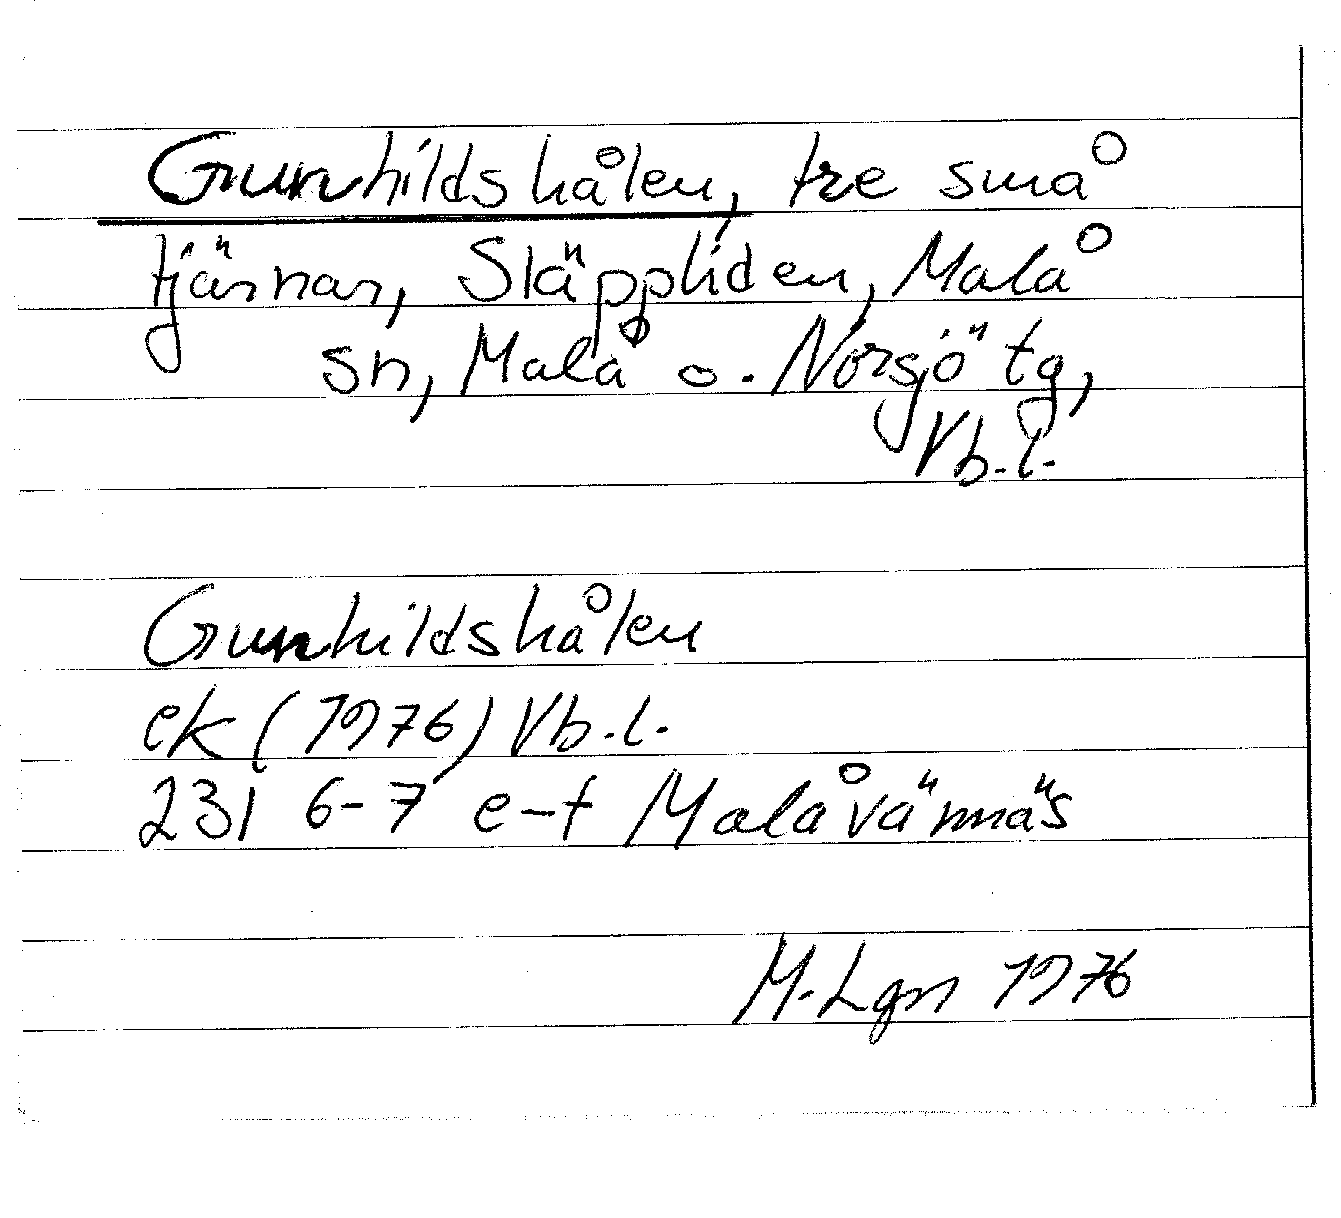 Gunhildshålen, tre små
tjärnar, Släppliden, Malå
sn, Malå o. Norsjö tg,
Vb.l.
Gunhildshålen
ek (1976) Vb.l.
231 6-7 e-f Malåvännäs
M.Lgn 1976